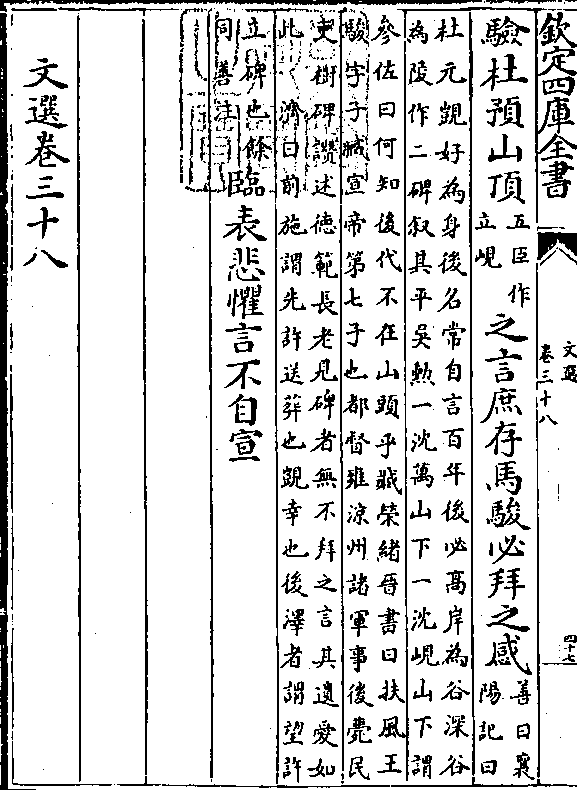 欽定四庫全書
文選
卷三十八
四十七
驗杜預山頂
五臣作
立峴
之言庶存馬駿必拜之感
善曰襄
陽記曰
杜元覬好為身後名常自言百年後必高岸為谷深谷
為陵作二碑叙其平吳勲一沈萬山下一沈峴山下謂
參佐曰何知後代不在山頭乎臧榮緒晉書曰扶風王
駿字子臧宣帝第七子也都督雍涼州諸軍事後薨民
吏樹碑讚述徳範長老見碑者無不拜之言其遺愛如
此 濟曰前施謂先許送葬也覬幸也後澤者謂望許
立碑也餘
同善注
臨表悲懼言不自宣
文選卷三十八